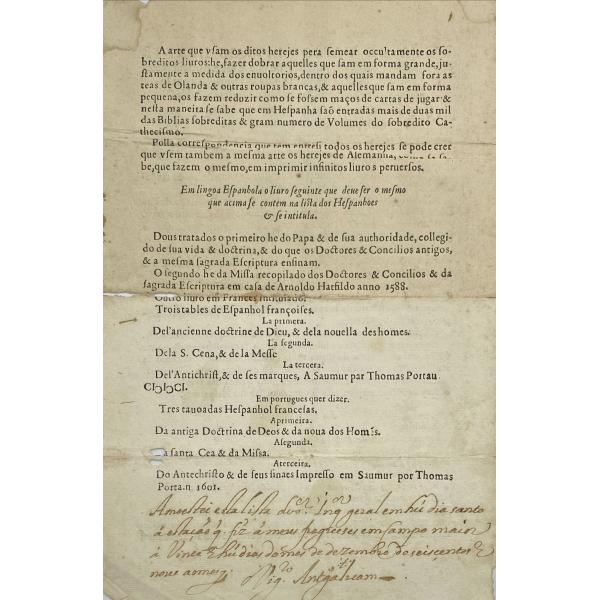 A arte que vsam os ditos herejes pera semear occultamente os so-
breditos liuros:he, fazer dobrar aquelles que sam em forma grande, ju-
stamente a medida dos enuoltorios, dentro dos quais mandam fora as
teas de Olanda & outras roupas brancas, & aquelles que sam em forma
pequena, os fazem reduzir como se fossem maços de cartas de jugar & 
nesta maneira se sabe que em Hespanha saõ entradas mais de duas mil
das Biblias sobreditas & gram numero de Volumes do sobredito Ca-
thecismo.
Polla correspondencia que tem entresi todos os herejes se pode crer
que vsem tambem a mesma arte os herejes de Alemanha, como se sa-
be, que fazem o mesmo, em imprimir infinitos liuros peruersos.
Em lingoa Espanhola o liuro seguinte que deue ser o mesmo
que acima se contem na lista dos Hespanhoes
& se intitula.
Dous tratados o primeiro he do Papa & de sua authoridade, collegi-
do de sua vida & doctrina, & do que os Doctores & Concilios antigos,
& a mesma sagrada Escriptura ensinam.
O segundo he da Missa recopilado dos Doctores & Concilios & da
sagrada Escriptura em casa de Arnoldo Hatfildo anno 1588.
Outro liuro em Frances intitulado.
Trois tables de Espanhol françoises.
La primera.
Del'ancienne doctrine de Dieu, & dela nouella des homes.
La segunda.
Dela S. Cena, & de la Messe
La tercera.
Del'Antichrist, & de ses marques, A Saumur par Thomas Portau
CIↃIↃCI.
Em portugues quer dizer.
Tres tauoadas Hespanhol francesas.
Aprimeira.
Da antiga Doctrina de Deos & da noua dos Homẽs.
Asegunda.
Da santa Cea & da Missa.
Aterceira.
Do Antechristo & de seus sinaes Impresso em Saumur por Thomas
Portau 1601.
Amostrei esta lista do sor Inqor geral em hũ dia santo
á estação q. fiz á meus freguezes em Campo maior
dias do mes de dezembro de seiscentos e
noue annos